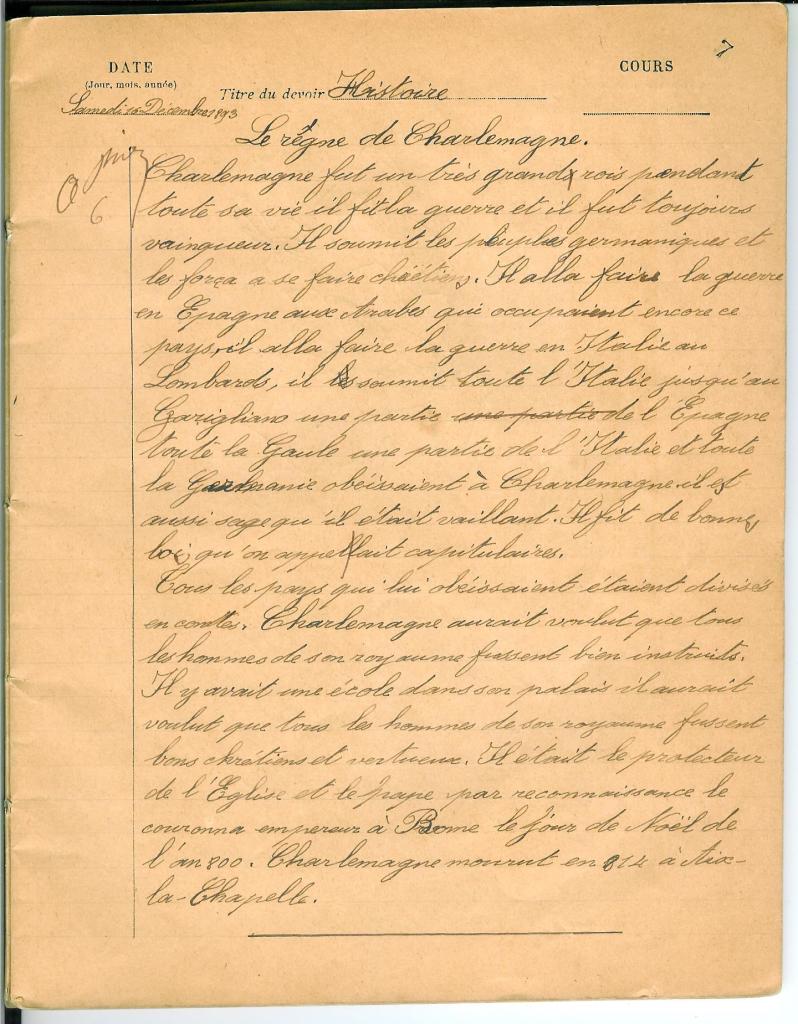 7
DATE
COURS
(Jour, mois, année)
Titre du devoir Histoire
Samedi 16 Décembre 1893
Le règne de Charlemagne.
6
Charlemagne fut un très grand rois pendant
toute sa vie il fit la guerre et il fut toujours
vainqueur. Il soumit les peuples germaniques et
les força a se faire chrétiens. Il alla faire la guerre
en Epagne aux Arabes qui occupaient encore ce
pays, il alla faire la guerre en Italie au
Lombards, il soumit toute l'Italie jusqu'au
Garigliano une partie une partie de l'Epagne
toute la Gaule une partie de l'Italie et toute
la Germanie obéissaient à Charlemagne il et
aussi sage qu'il était vaillant. Il fit de bonnes
lois qu'on appellait capitulaires.
Tous les pays qui lui obéissaient étaient divisés
en comtés. Charlemagne aurait voulut que tous
les hommes de son royaume fussent bien instruits.
Il y avait une école dans son palais il aurait
voulut que tous les hommes de son royaume fussent
bons chrétiens et vertueux. Il était le protecteur
de l'Eglise et le pape par reconnaissance le
couronna empereur à Rome le jour de Noël de
l'an 800. Charlemagne mourut en 814 à Aix-
la-Chapelle.